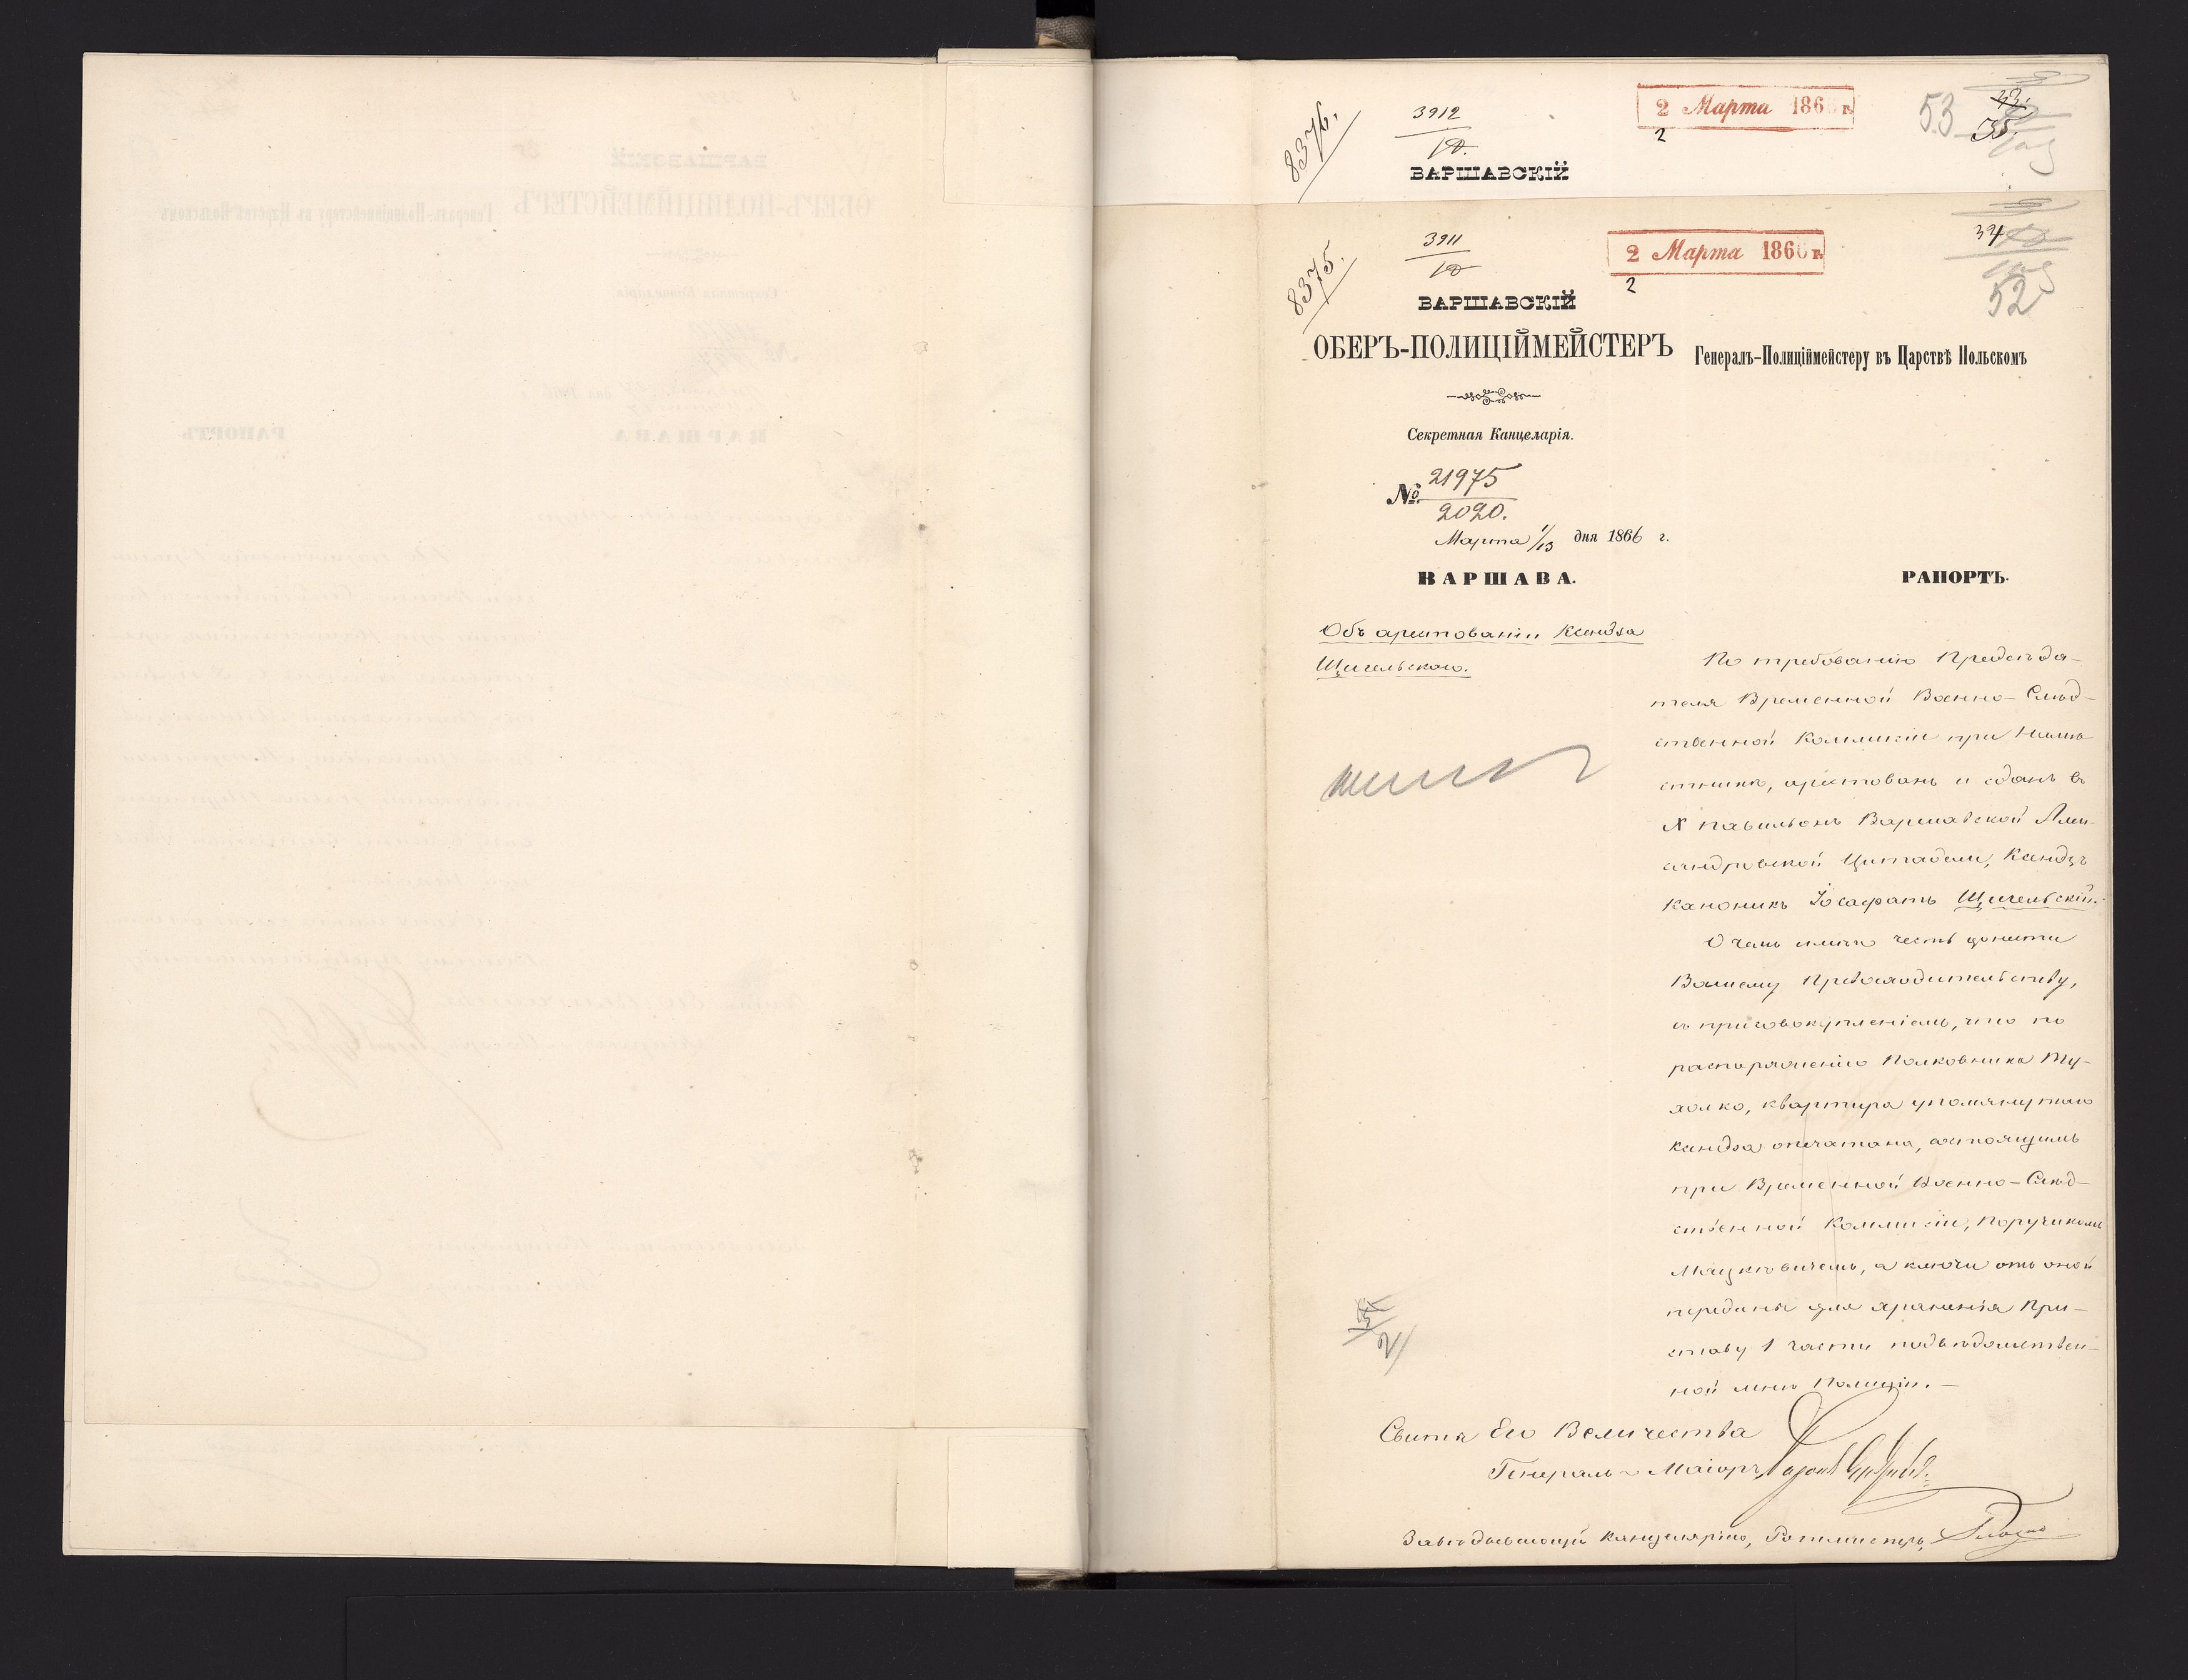 8376.
3912
2 Марта 186 г.
2
53
55.
ВАРШАВСКІЙ
8375.
3911
2 Марта 1866 г.
2
34
52
ВАРШАВСКІЙ
ОБЕРЪ-ПОЛИЦІЙМЕЙСТЕРЪ
Генералъ-Полиціймейстеру въ Царствѣ Польскомъ
Секретная Канцелярія.
№ 21975
2020.
Марта 1/13 дня 1866 г.
ВАРШАВА.
РАПОРТЪ.
Объ арестованіи Ксендза
Щигельскаго.
По требованію Предсѣда-
теля Временной Военно-Слѣд-
ственной Коммисіи при Намѣ-
стникѣ, арестованъ и сданъ въ
X павильонъ Варшавской Алек-
сандровской Цитадели, Ксендзъ
Каноникъ Іосафатъ Щигельскій.
О чемъ имѣю честь донести
Вашему Превосходительству,
съ присовокупленіемъ, что по
распоряженію Полковника Ту-
холко, квартира упомянутаго
ксендза опечатана, состоящимъ
при Временной Военно-Слѣд-
ственной Коммисіи, Поручикомъ
Мацкевичемъ, а ключи отъ оной
переданы для храненія При-
ставу 1 части подвѣдомствен-
ной мнѣ Полиціи.-
Свиты Его Величества
Генералъ-Маіоръ, Баронъ
Завѣдывающій Канцеляріею, Ротмистръ,